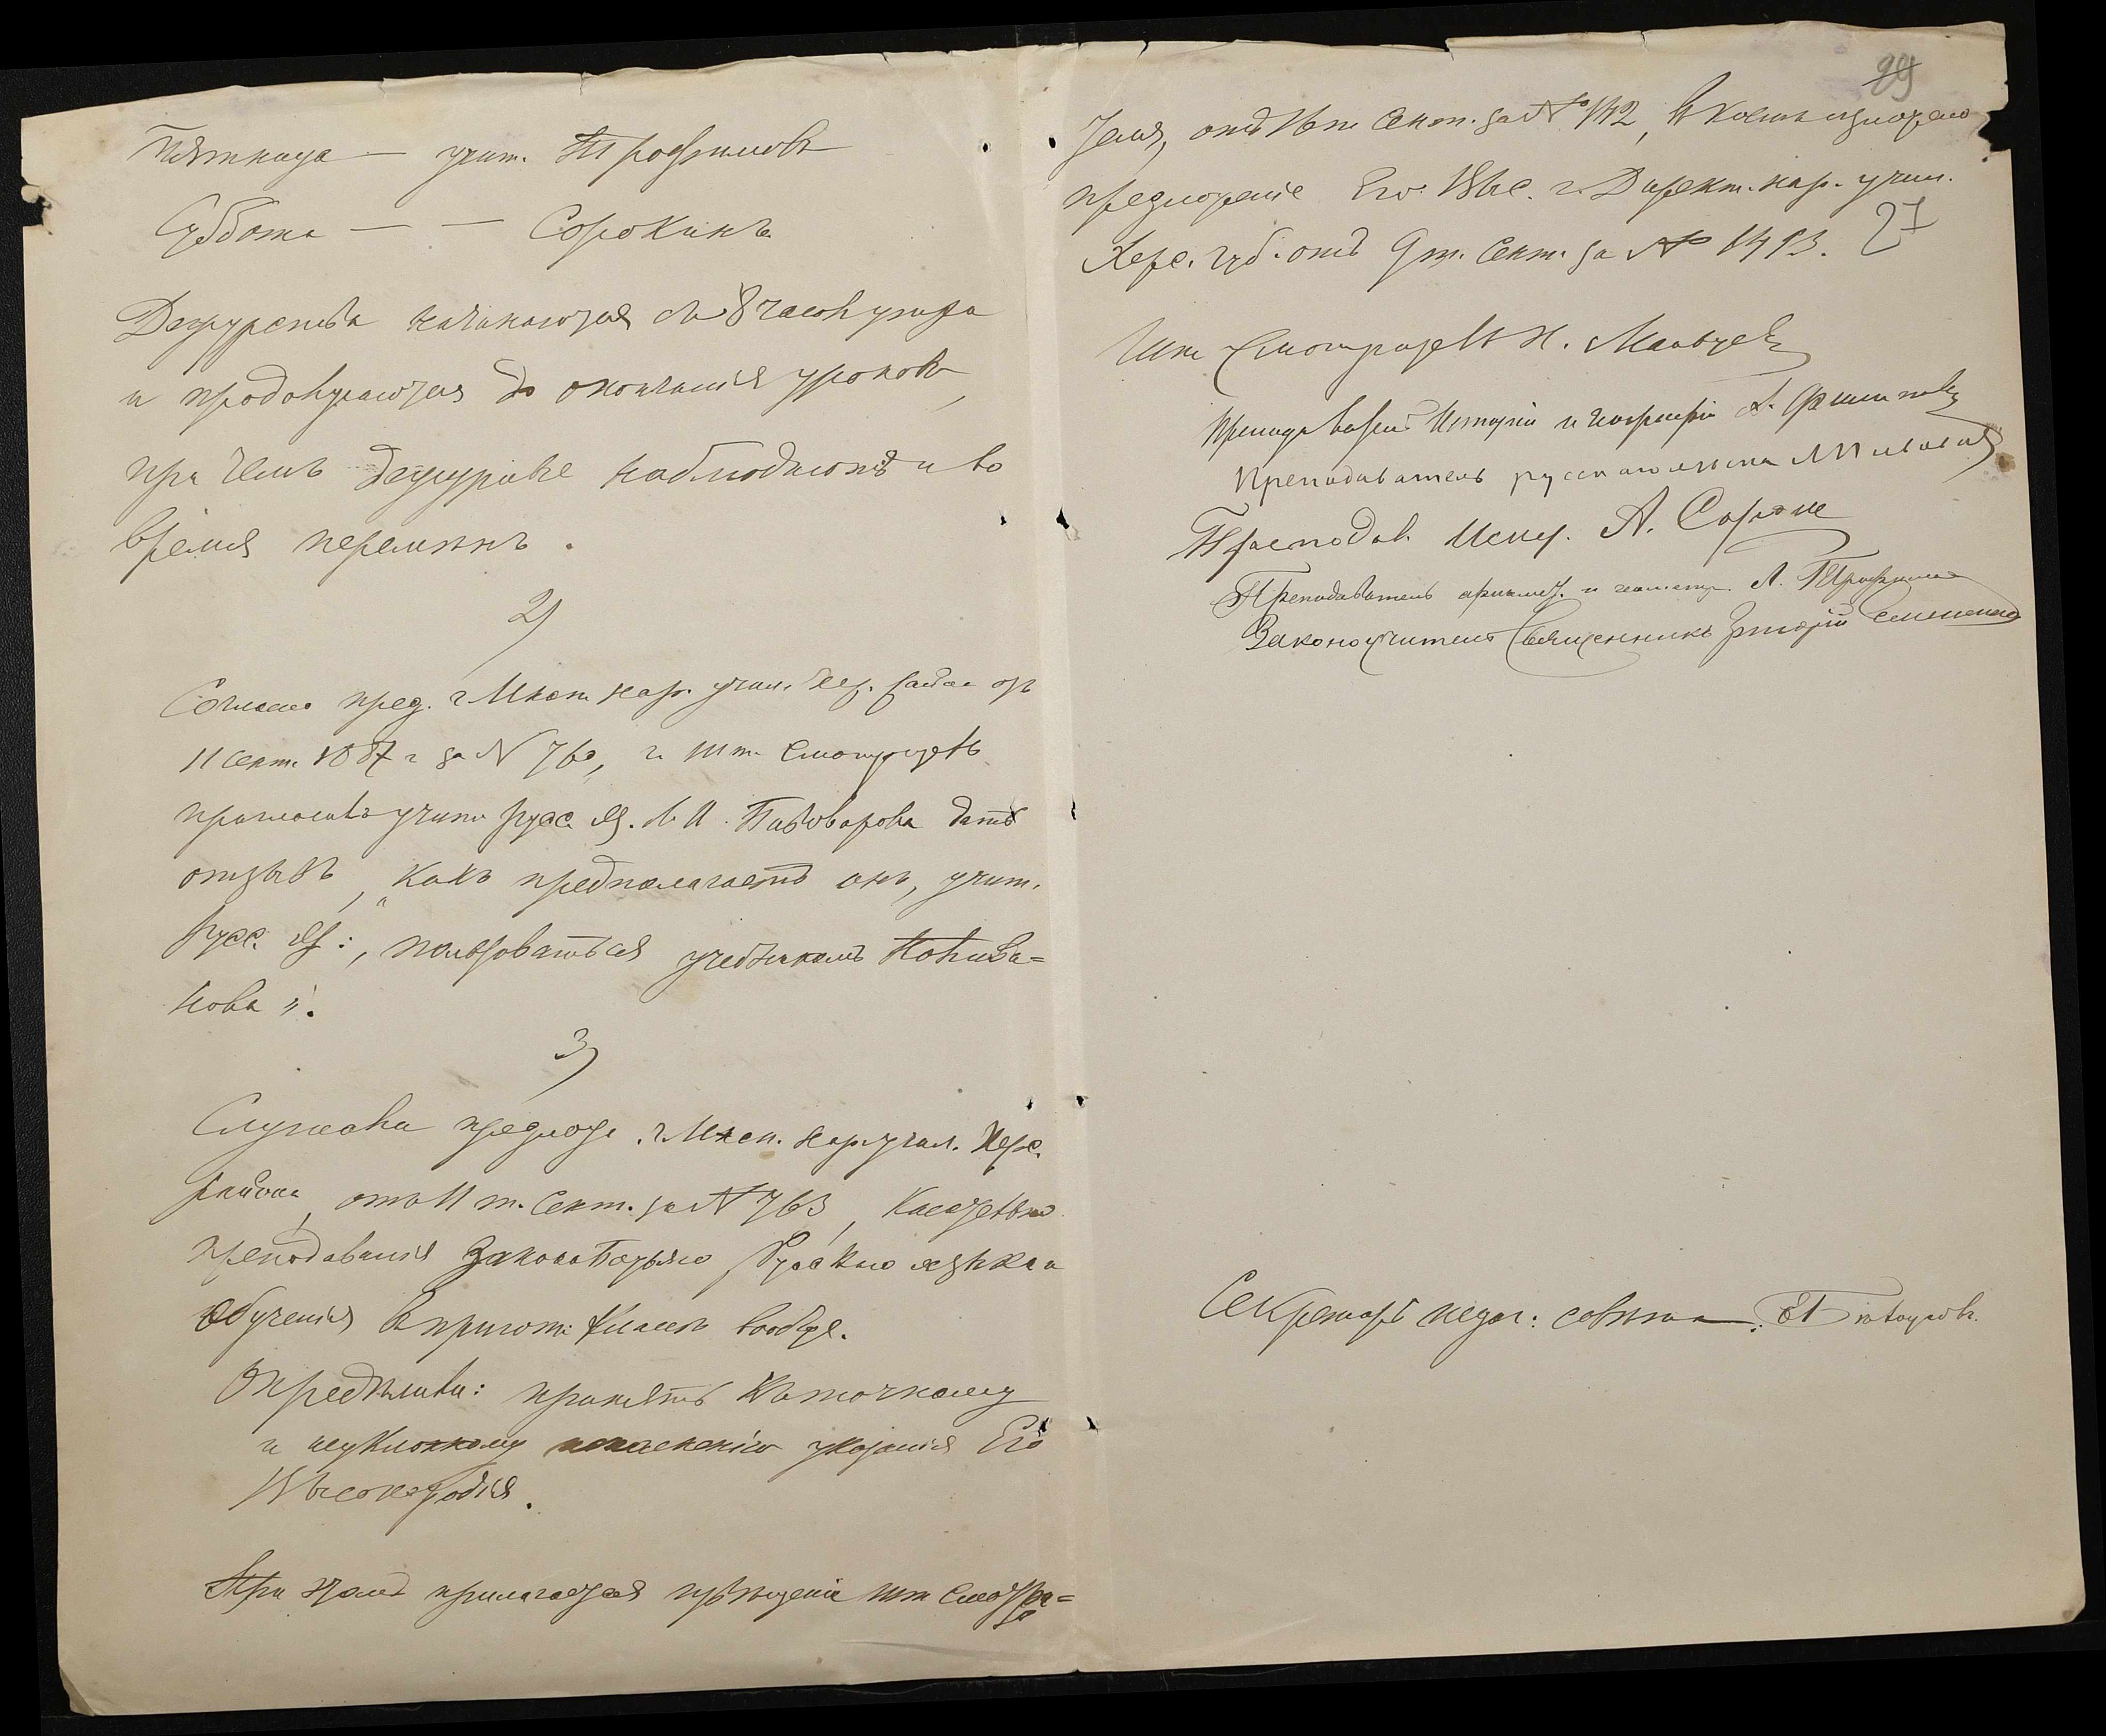 Пятница — учит. Трофимовъ
Суббота — — Сорокинъ
Дежурства начинаются съ 8 часовъ утра
и продолжаются до окончанія уроковъ,
при чемъ дежурные наблюдаютъ и во
время перемѣнъ.
2)
Согласно пред. г. Инсп. нар. учил. Хер. района отъ
11 сент. 1887 г за № 760, г. шт. смотритель
пригласилъ учит. русс. яз. Л. И. Пивоварова дать
отзывъ, „какъ предполагаетъ онъ, учит.
русс. яз:, пользоваться учебникомъ Поливо=
нова“.
3)
Слушали предлож. г. Инсп. нар. учил. Херс.
района, отъ 11 т. Сент. за № 763, касательно
преподаванія Закона Божьяго, Русскаго языка и
обученія въ пригот: классѣ вообще.
Опредѣлили: принять къ точному
и неуклонному исполненію указанія Его
Высокородія.
При чемъ прилагается шт. смотри=
теля, отъ 16 т. Сент. за № 142, въ коемъ изложено
предложеніе Его Выс. г. Директ. нар. учил.
Херс. губ. отъ 9 т. Сент. за № 1493.
27
Шт. Смотритель Н. Мальцевъ
Преподаватель Исторіи и географіи
Преподаватель русскаго языка
Преподав. А. Сорокинъ
Преподаватель ариѳмет. и геометр. Л. Трофимовъ
Законоучитель Священникъ Григорій
Секретарь педаг: совѣта: